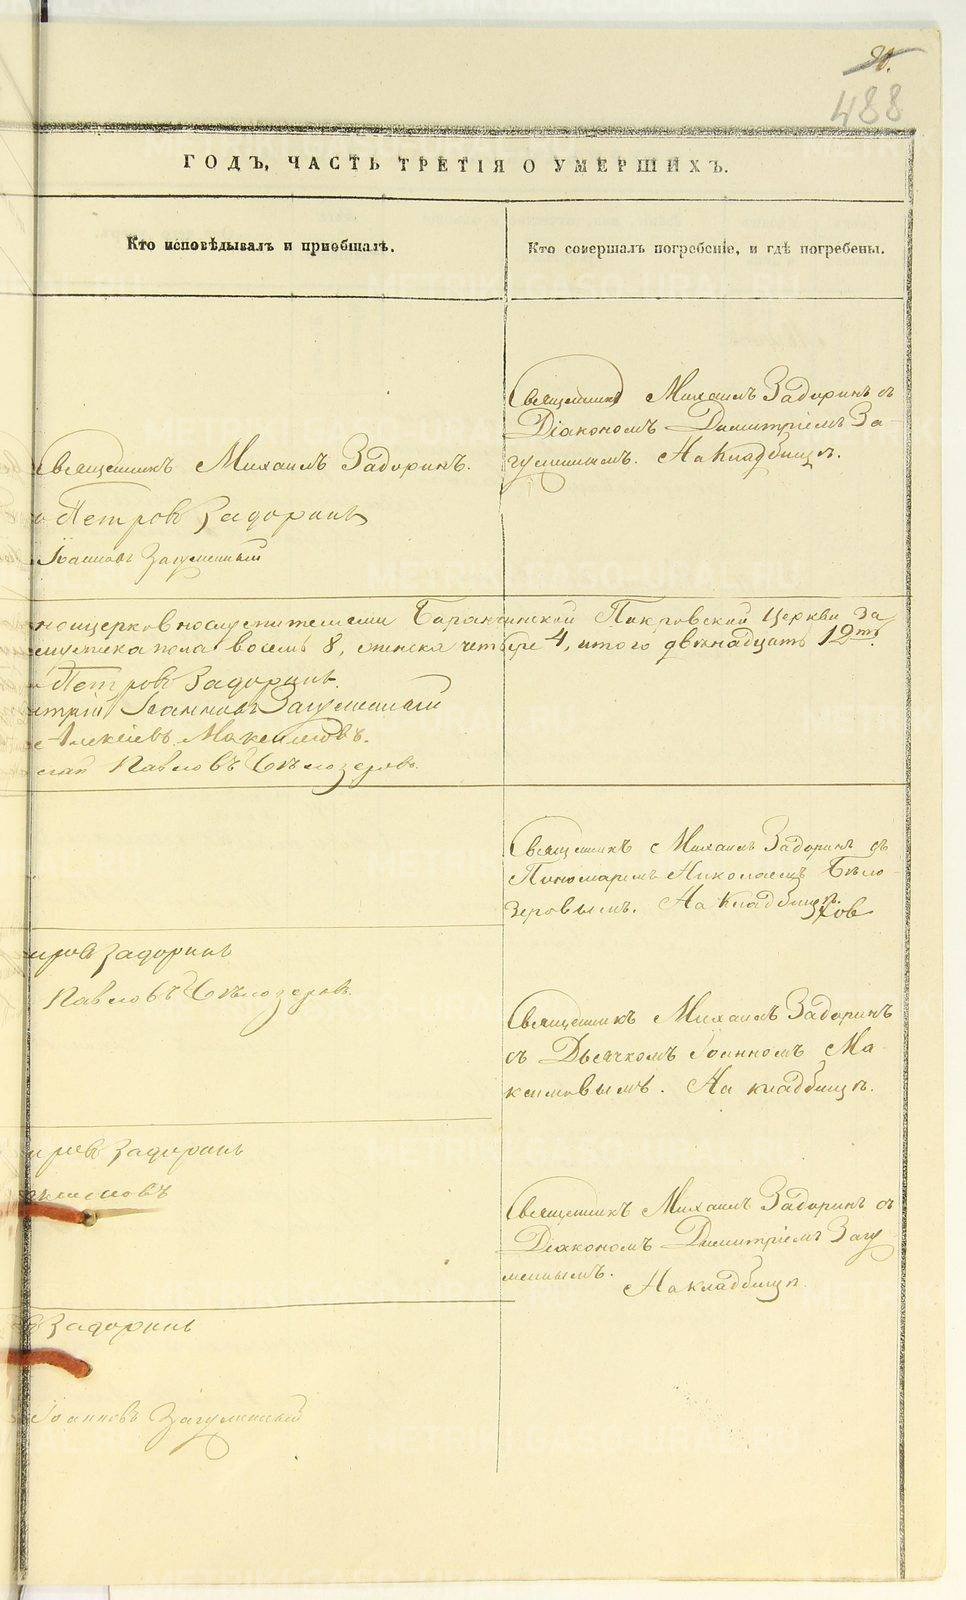 20.
488
ГОДЪ, ЧАСТЬ ТРЕТІЯ О УМЕРШИХЪ.
Кто исповѣдывалъ и пріобщалъ.
Кто совершалъ погребеніе, и гдѣ погребены.
Священникъ Михаилъ Задоринъ съ
Діакономъ Димитріемъ За-
гуменнымъ. На кладбищѣ.
Священникъ Михаилъ Задоринъ.
Петровъ Задоринъ
Іоанновъ Загуменный
Баранчинской Покровской Церкви За
мужеска пола восемь 8, женска четыре 4, итого двѣнадцать 12ть.
Петровъ Задоринъ
итрій Іоанновъ Загуменный
Алексѣевъ Максимовъ.
Павловъ Бѣлозеровъ
Священникъ Михаилъ Задоринъ съ
Пономаремъ Николаемъ Бѣло-
зеровымъ. На кладбищѣ.
ровъ Задоринъ
Павловъ Бѣлозеровъ
Священникъ Михаилъ Задоринъ
съ Дьячкомъ Іоанномъ Ма-
ксимовымъ. На кладбищѣ.
ровъ Задоринъ
ксимовъ
Священникъ Михаилъ Задоринъ съ
Діакономъ Димитріемъ Загу
меннымъ.
На кладбищѣ
Задоринъ
Іоанновъ Загуменный
METRIKI.GASO-URAL.RU